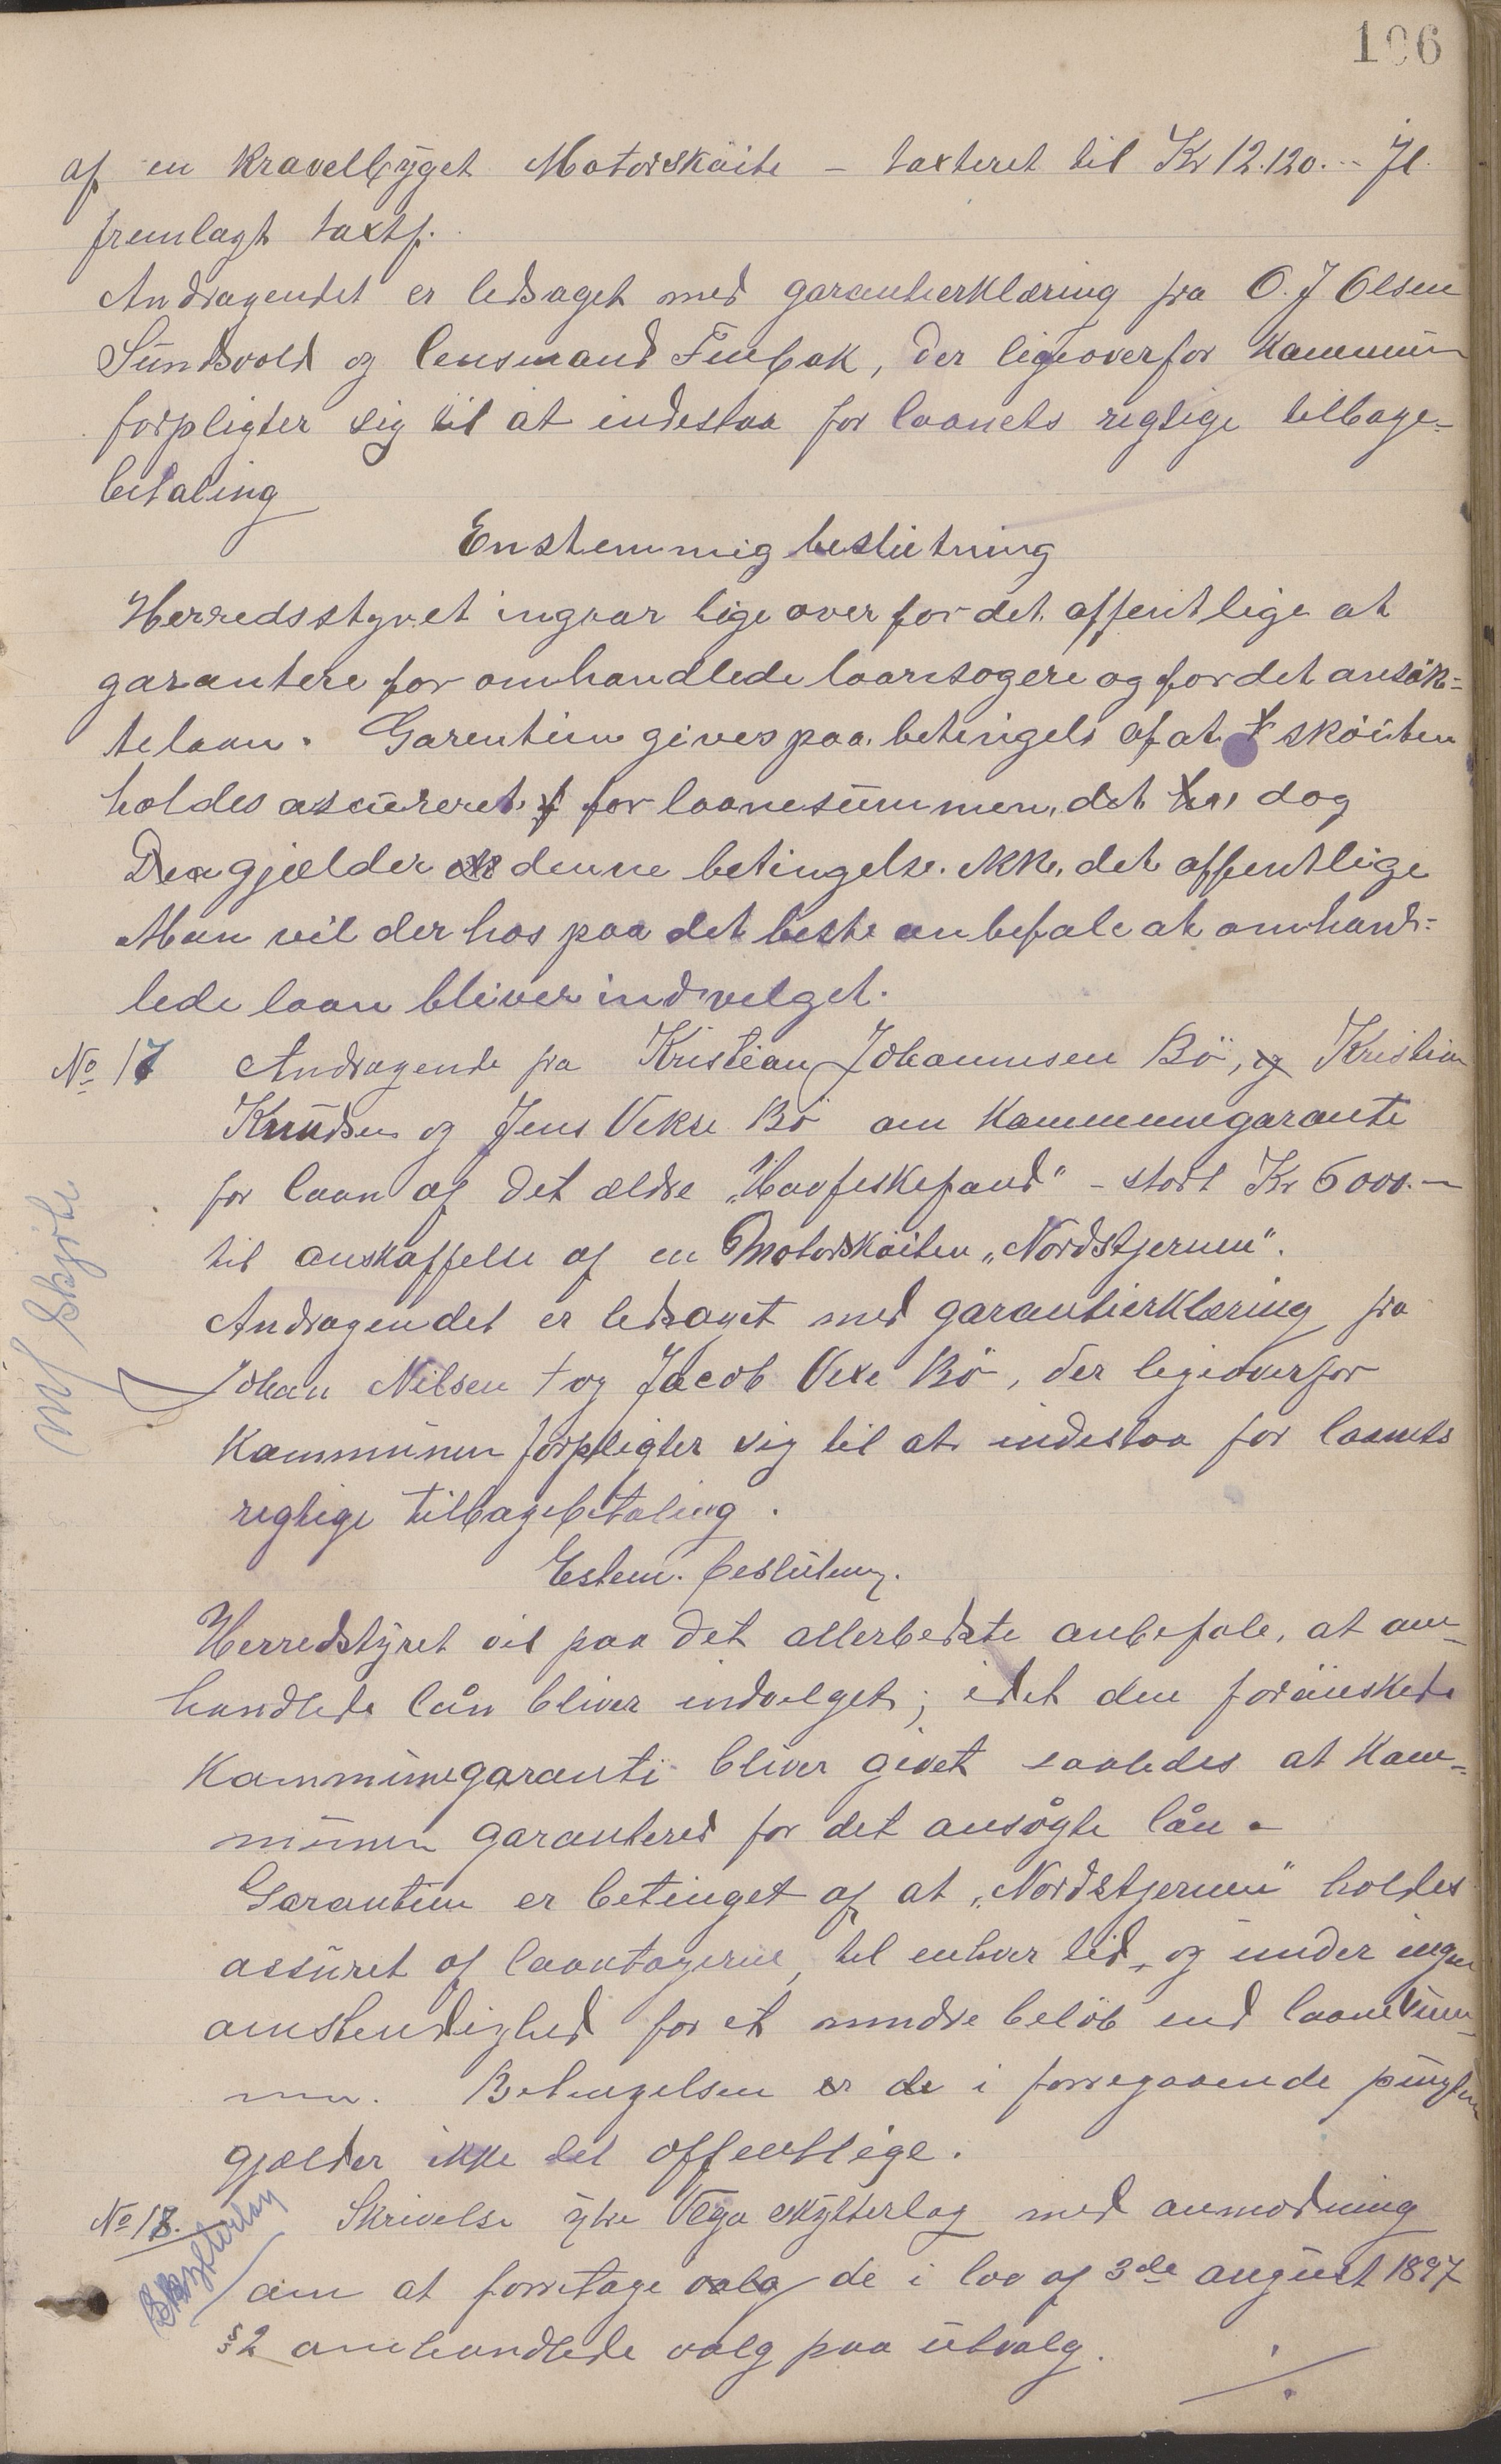 106
af en Kravelbyget Motorskøite - taxteret til Kr 12.120.-- Jf.
fremlagt taxtf.
Andragendet er ledsaget med garantierklæring fra O. J Olsen
Sundsvold og lensmand Finbak, der ligeoverfor Kommun
forpligter sig til at indestaa for laanets regtige tilbage-
betaling
Enstemmig beslutning
Herredsstyret ingaar lige over for det offentlige at
garantere for omhandlede laansøgere og for det ansøk-
te laan. Garentien gives paa betingels af at skøiten
holdes ascureret for laanesummen, det dog
gjælder denne betingelse ikke det offentlige
Man vil der hos paa det beste anbefale at omhand-
lede laan bliver indvelget.
No 17 Andragende fra Kristian Johannesen Bø, og Kristian
Knudsen og Jens Vekse Bø om Kommunegarante
for laan af det ældre "Havfiskefand" - stort Kr 6000.-
til anskaffelse af en Motorskøiten "Nordstjernen".
Andragendet er ledsaget med garantierklæring fra
Johan Nilsen + og Jacob Vexe Bø, der ligeoverfor
Kommunen forpligter sig til at indestaa for laanets
regtige tilbagebetaling.
Estem. beslutning.
Herredstyret vil paa det allerbedste anbefale, at om-
handlede lån bliver indvelget; idet den forønskede
Kommunegaranti bliver givet saaledes at Kom-
munen garantered for det ansøgte lån -
Garantien er betinget af at "Nordstjernen" holdes
assuret af laantagerne, til enhver tid, og under ingen
omstendighed for et mindre beløb end laanesum-
men. Betingelsen er de i forregaaende pungten
gjælder ikke det offentlige.
No 18. Skrivelse fra Vega skytterlag med anmodning
Skytterlag
om at foretage valg de i lov af 3de august 1897
§ 2 omhandlede valg paa utvalg.
·/·